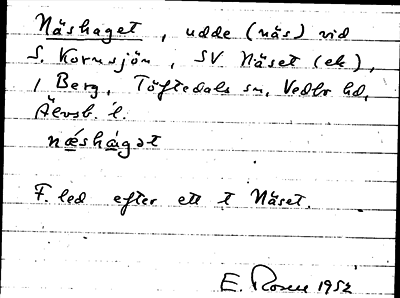 Näshaget, udde (näs) vid
S. Kornsjön, SV Näset (ek),
i Berg, Töftedals sn, Vedbo hd,
Älvsb. l.
næ̂shágət
F. led efter ett t Näset.
E. Rosen 1952